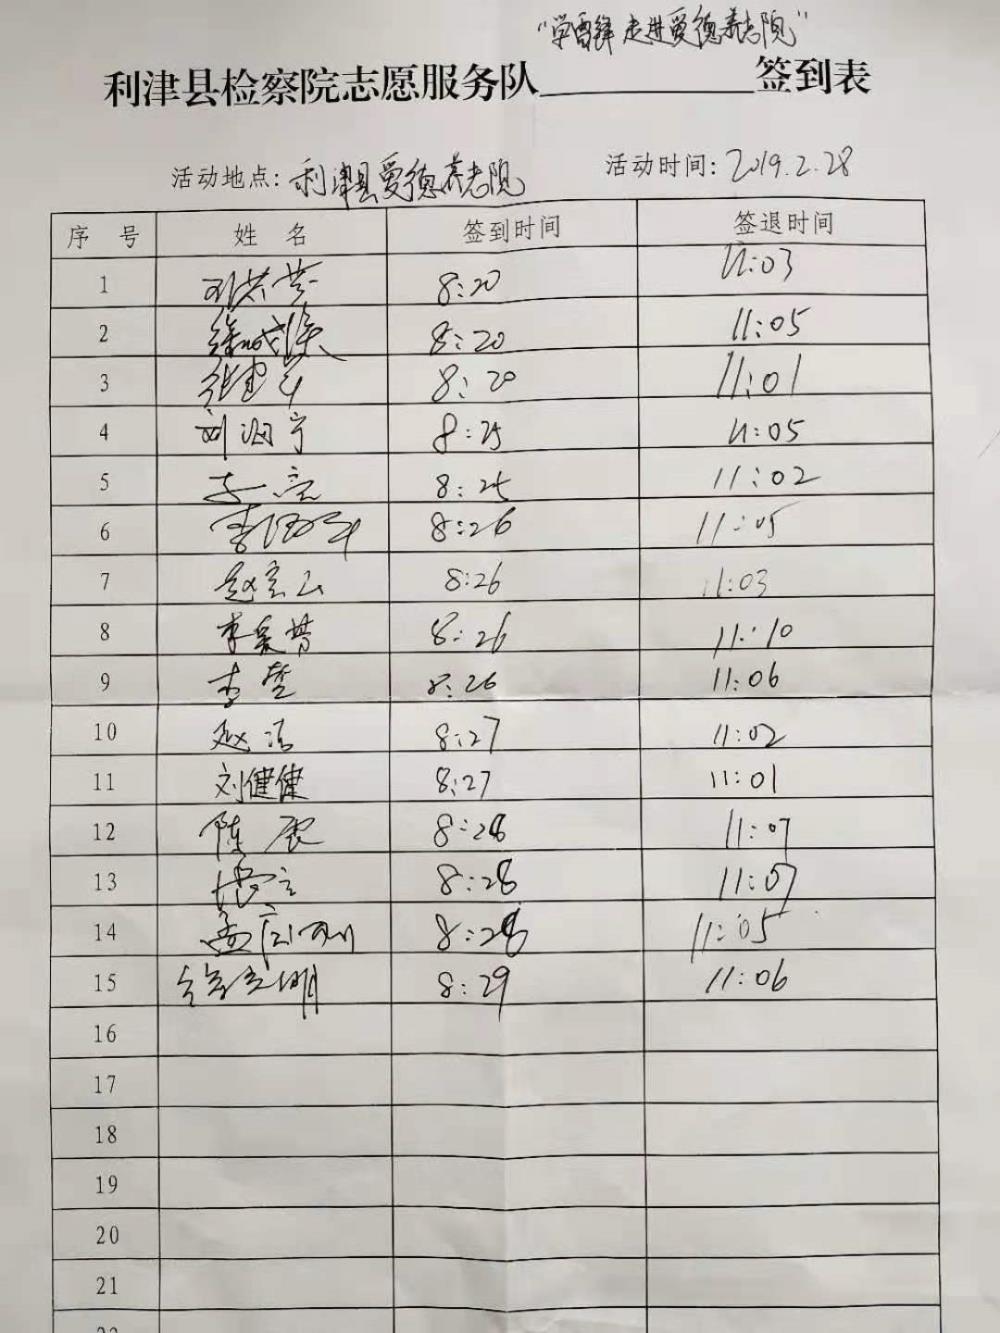 "学雷锋 走进爱德养老院"
利津县检察院志愿服务队__________签到表
活动地点: 利津县爱德养老院 活动时间: 2019.2.28
序 号 姓 名 签到时间 签退时间
1 8:20 11:03
2 8:20 11:05
3 8:20 11:01
4 刘海宁 8:25 11:05
5 李亮 8:25 11:02
6 李 8:26 11:05
7 赵 8:26 11:03
8 李 8:26 11:10
9 李 8:26 11:06
10 赵洁 8:27 11:02
11 刘健健 8:27 11:01
12 陈 8:28 11:07
13 8:28 11:07
14 孟 8:28 11:05
15 明 8:29 11:06
16
17
18
19
20
21
22